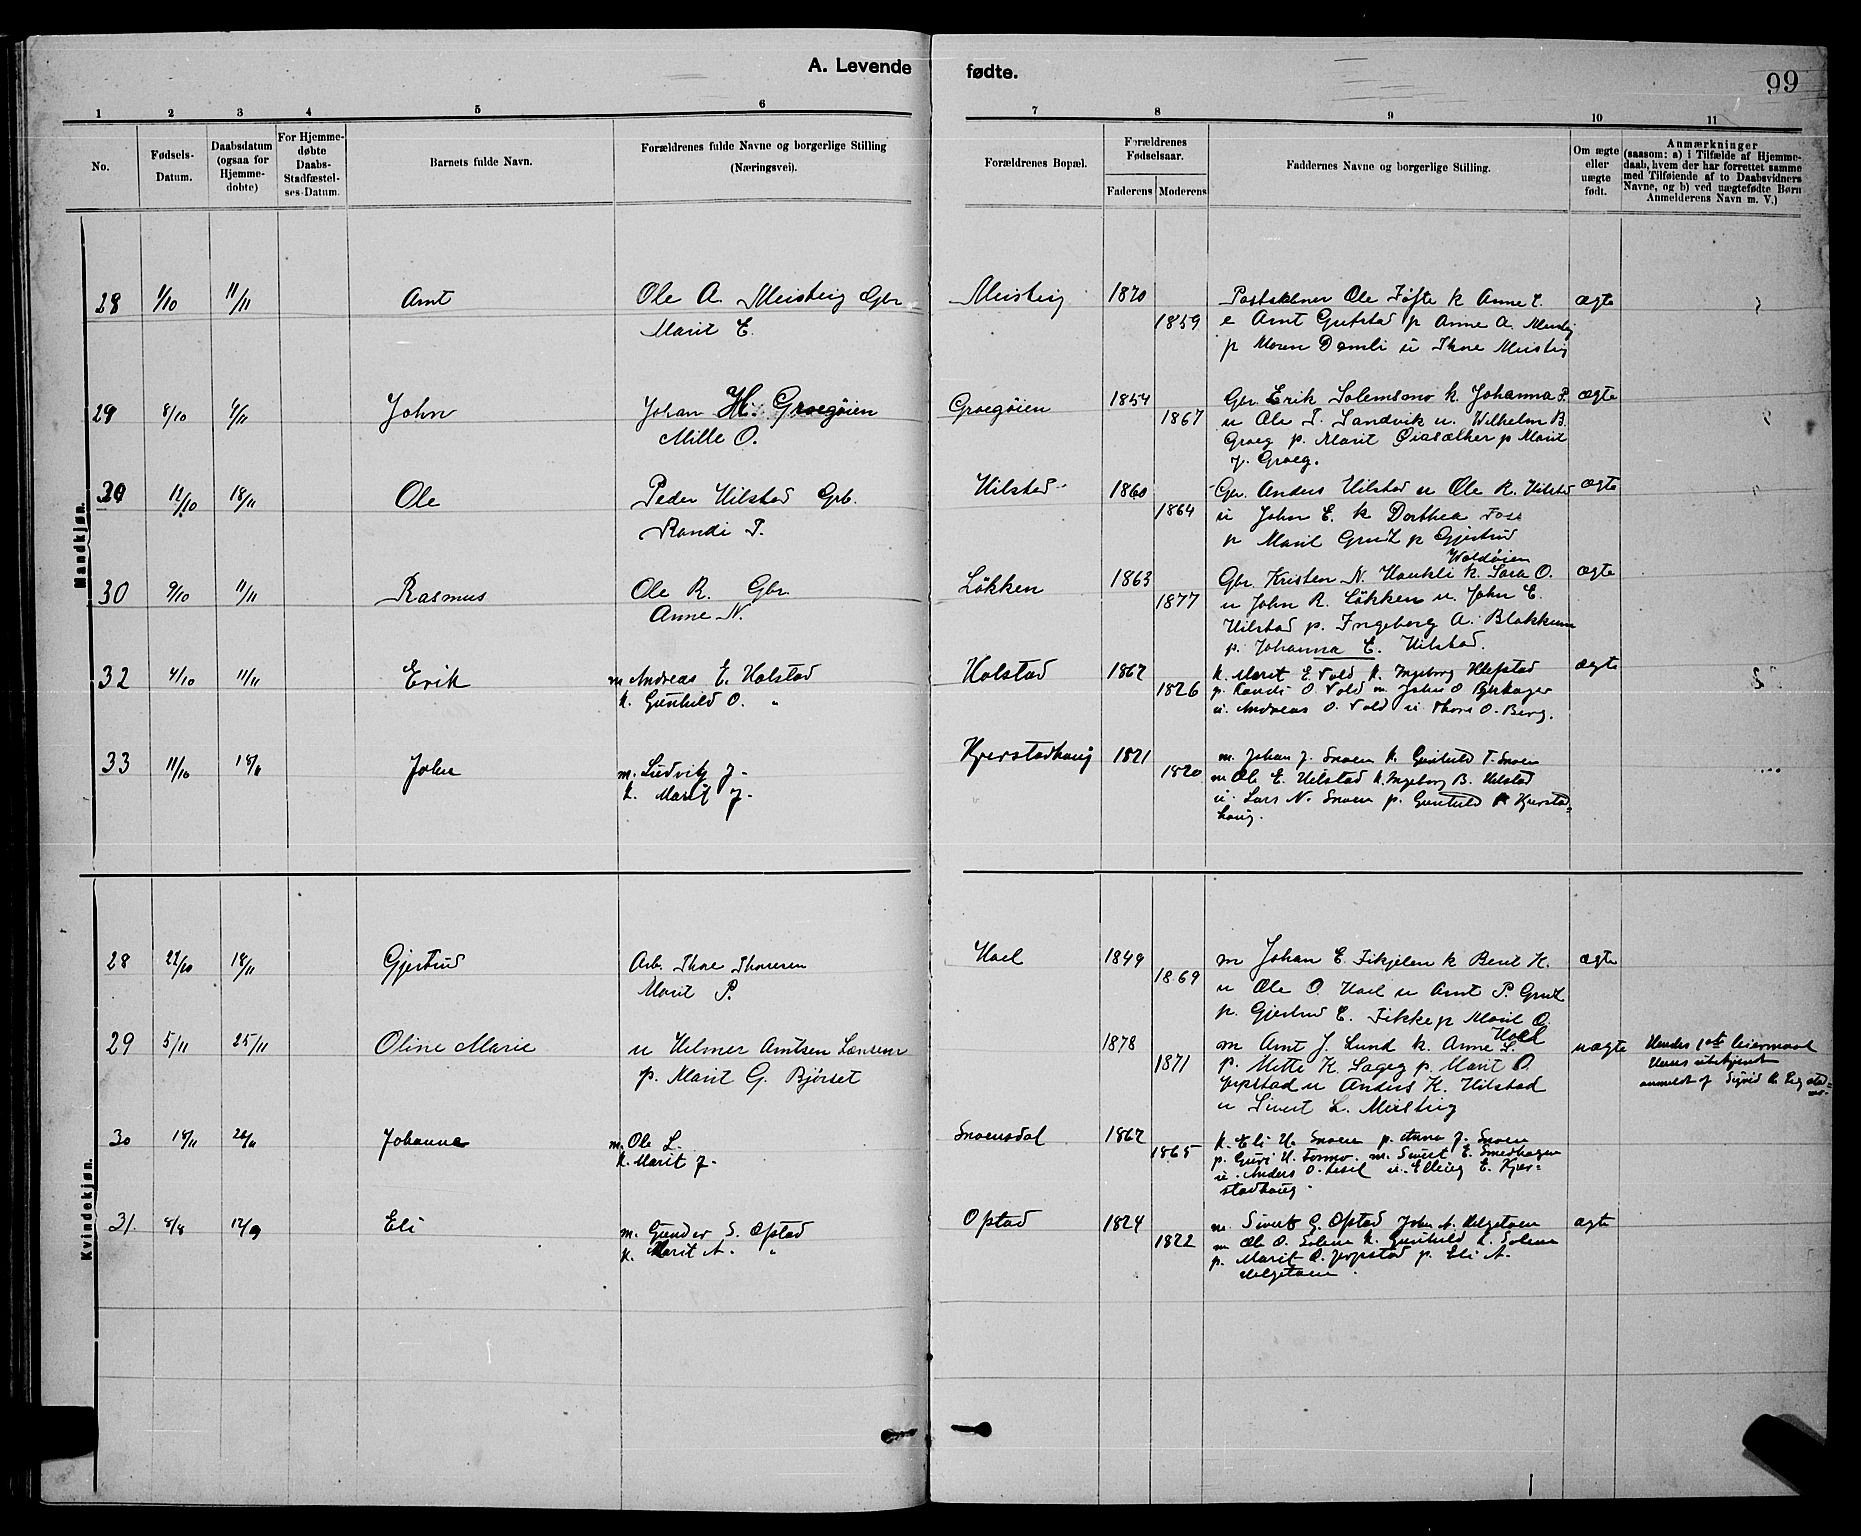 A. Levende fødte.
99
1 2 3 4 5 6 7 8 9 10 11
No.
Fødsels-Datum.
Daabsdatum (ogsaa for Hjemmedøbte)
For Hjemmedøbte Daabs-Stadfæstelses-Datum.
Barnets fulde Navn.
Forældrenes fulde Navne og borgerlige Stilling
(Næringsvei).
Forældrenes Bopæl.
Forældrenes Fødselsaar.
Faderens Moderens
Faddernes Navne og borgerlige Stilling.
Om ægte eller uægte født.
Anmærkninger
(saasom: a) i Tilfælde af Hjemme-
daab, hvem der har forrettet samme
med Tilføiende af to Daabsvidners
Navne, og b) ved uægtefødte Børn
Anmelderens Navn m. V.)
Mandkjøn.
28 1/10 11/11 Arnt Ole A. Meistrig Gbr Meistrig 1870 Ole Tøfte k Anne E. ægte
Marit E. 1859 Arnt p Anne A.
p Maren u Thore Meistrig
29 8/10 John Johan H. Groegøien Groegøien 1854 Gbr. Erik Solemsmo k. Johanna P. ægte
Mille O. 1867 u Ole Sandvik u. Wilhelm B.
Groeg p. Marit p Marit
J. Groeg.
30 12/10 18/11 Ole Peder Uilstad Grb. Uilstad 1860 Gbr. Anders Uilstad u Ole K. Uilstad ægte
Randi 1864 u John E. k Dorthea Foss
p Marit Grut p Gjertrud
Woldøien
30 9/10 11/11 Rasmus Ole R. Gbr. Løkken 1863 Gbr Kristen N. Haukli k. Sara O. ægte
Anne N. 1877 u John R. Løkken u. John E.
Uilstad p. Ingeborg A. Blokkum
p. Johanna E. Uilstad.
32 4/10 11/11 Erik m. Andreas E. Holstad Holstad 1867 k. Marit E. Vold k. Ingeborg ægte
k. Gunhild O. " 1826 p. Randi O. Vold m. John O
u. Andreas O. Vold u Thore O. Berg.
33 11/10 John m. Ludvik J. Kjerstadhaug 1821 m. Johan J. Snoen k. Gunhild T. Snoen
k. Marit J. 1820 m Ole E. Uilstad k. Ingeborg B. Uilstad
u. Lars N. Snoen p. Gunhild Kjerstad-
haug.
Kvindekjøn.
28 22/10 18/11 Gjertrud Arb. Thore Thoresen Hoel 1849 m Johan E. k Berit K. ægte
Marit P. 1869 u Ole O. Hoel u Arnt P. Grut
p. Gjertrud E. p Marit O.
Hoel
29 5/11 25/11 Oline Marie u Hilmer Arntsen 1878 m Arnt J. Lund k. Anne L. uægte Hendes 1ste leiermaal
p. Marit G. Bjørset 1871 p. Mette K. p. Marit O Hans
Jopstad u Anders K. Uilstad anmeldt af Sigrid
u Sivert L. Meistrig
30 18/11 Johanna m. Ole L. Snoensdal 1867 k. Eli H. Snoen p. Anna J. Snoen
k. Marit J. 1865 p. Guri H. Tormo. m. Sivert E. Smedhagen
u. Anders O. u. Elling E. Kjer-
stadhaug.
31 8/8 12/9 Eli m. Gunder S. Opstad Opstad 1824 m. Sivert G. Opstad John A. ægte
k. Marit A. " 1822 m Ole O. Solem k. Gunhild Solem
p. Marit O. Jopstad p. Eli A.